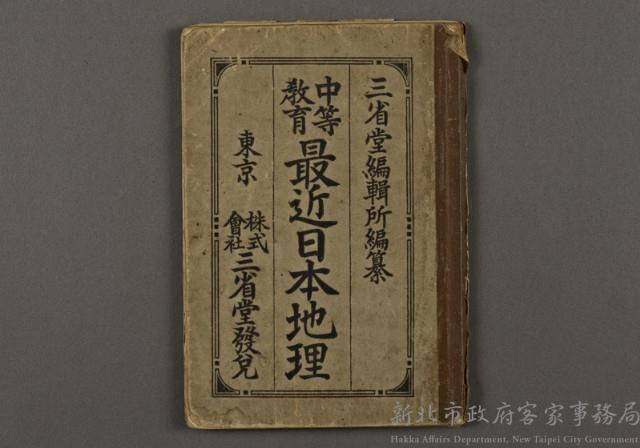 三省堂編輯所編纂
中等
教育
最近日本地理
東京
株式
會社
三省堂發兌
新北市政府客家事務局
Hakka Affairs Department, New Taipei City Government